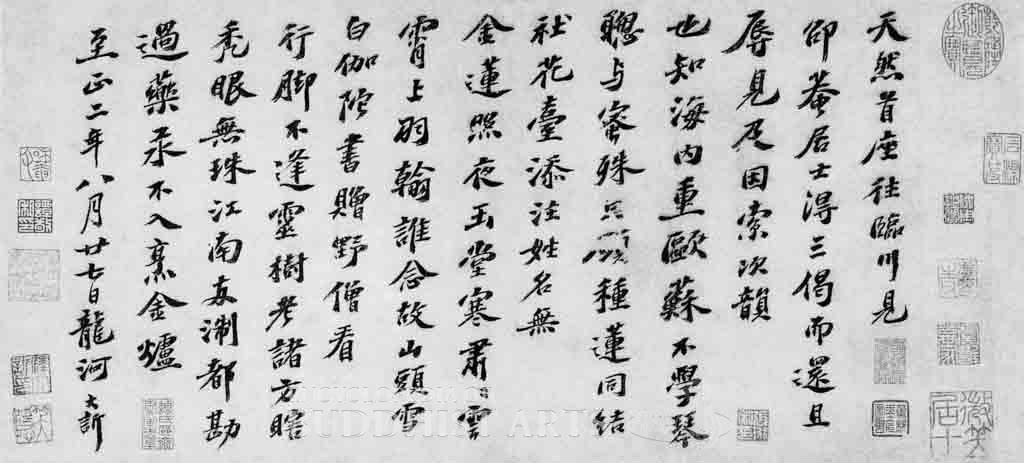 天然首座往臨川見
邵菴居士得三偈而還且
辱見及因索次韻
也知海內重歐蘇不學琴
聰与蜜殊種蓮同結
社花臺添注姓名無
金蓮照夜玉堂寒肅雲
霄上羽翰誰念故山頭雪
白伽陀書贈野僧看
行脚不逢靈樹老諸方瞎
禿眼無珠江南淛都勘
過藥汞不入烹金爐
至正二年八月廿七日龍河大訢
BUDDHIST ART